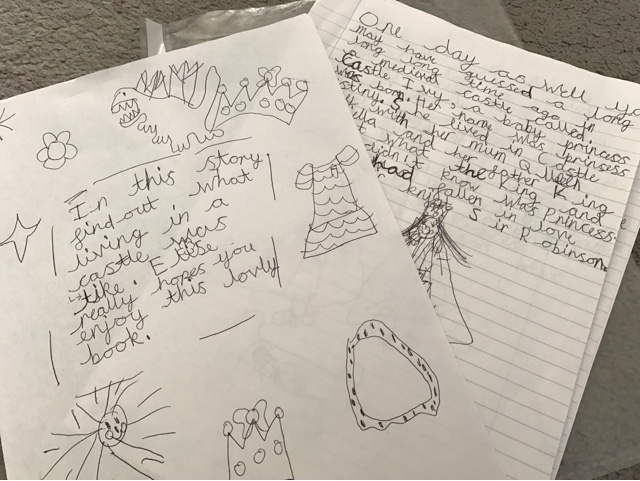 In this story
find out what
living in a
castle was
like. Elsie
really hopes you
enjoy this lovly
book.
One day as well yo
may have guissed a long
long time ago in
medieval castle called
Castle Ivy, a baby princess
was born. Her name was Prinsess
She lived in Castle
with her mum Queen
and her father King
what the King and
didn't know was princess
had fallen in love
Sir Robinson.